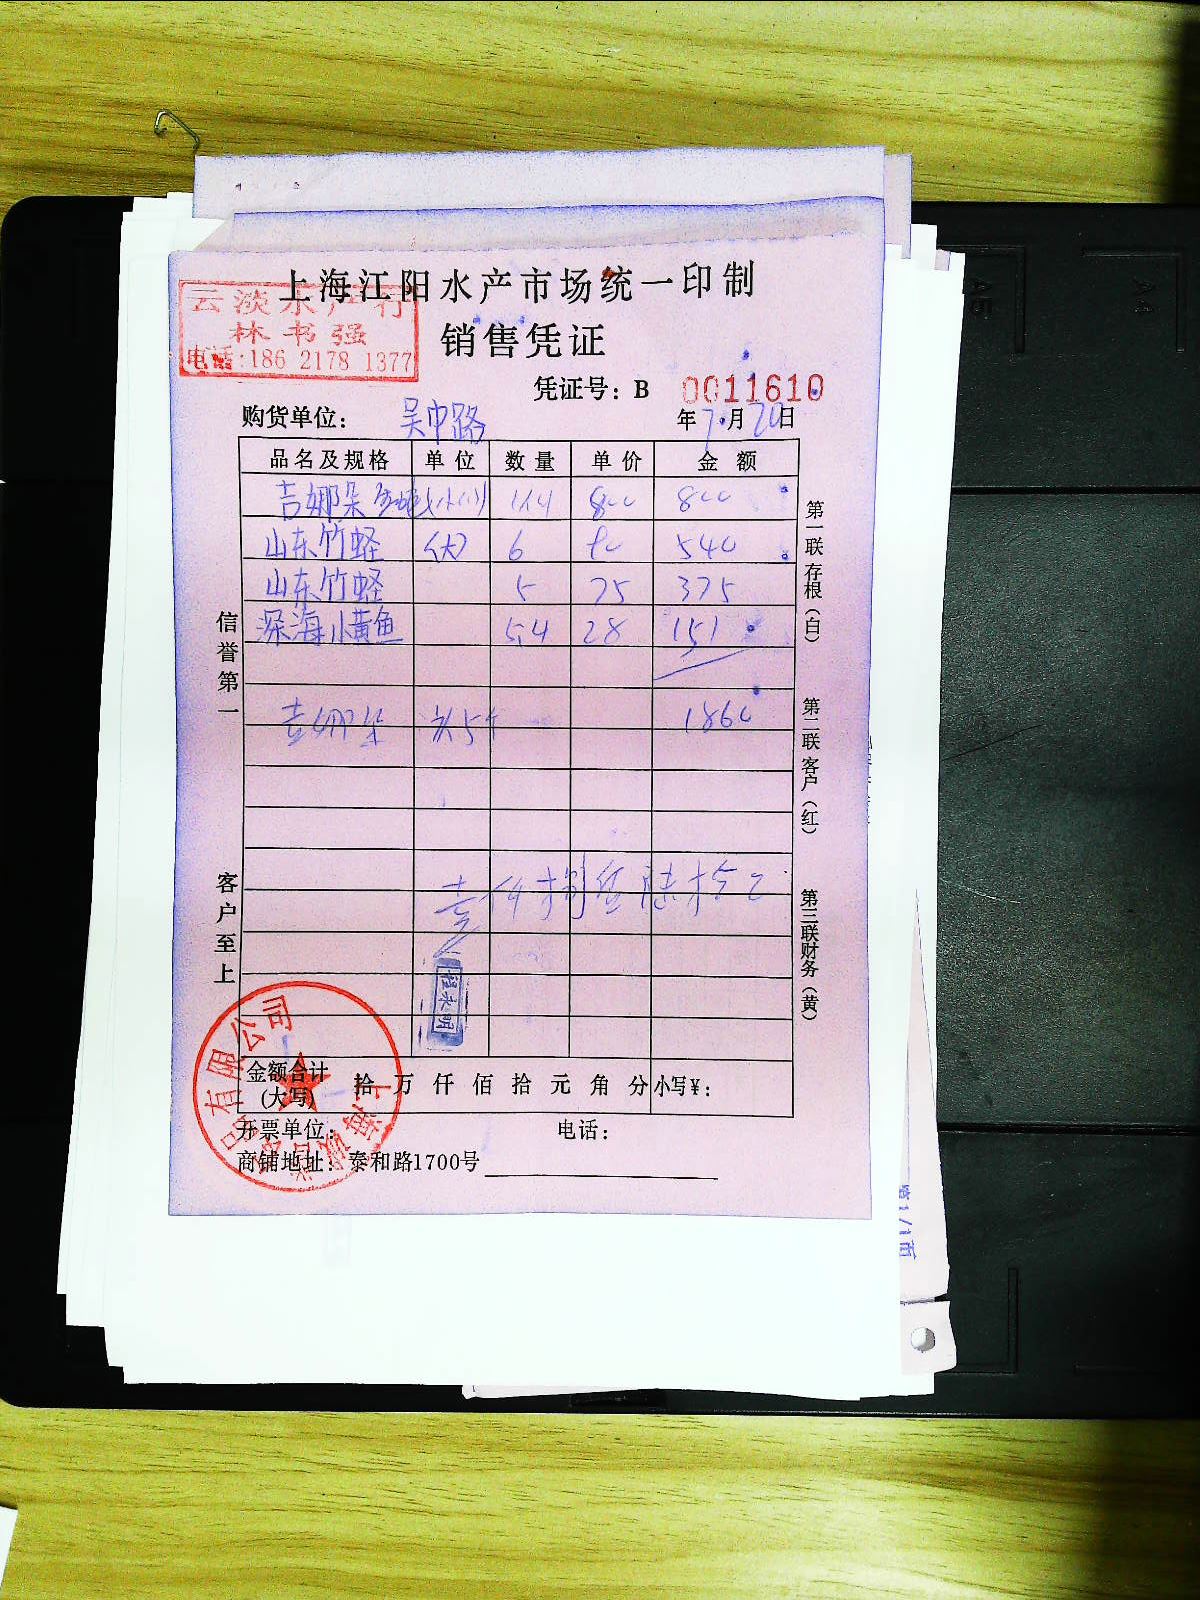 上海江阳水产市场统一印制
云淡水产行
林书强
电话:186 2178 1377
销售凭证
凭证号: B 0011610
购货单位: 吴中路 年7月20日
品名及规格 单位 数量 单价 金额
吉娜朵 800 800
山东竹蛏 (大) 6 90 540
山东竹蛏 5 75 375
深海小黄鱼 5.4 28 151
吉娜朵 共5个 1860
壹仟捌佰陆拾元
信誉第一
客户至上
第一联存根(白)
第二联客户(红)
第三联财务(黄)
程永明
金额合计(大写) 拾万仟佰拾元角分 小写¥:
开票单位: 电话:
商铺地址: 泰和路1700号
A5
A4